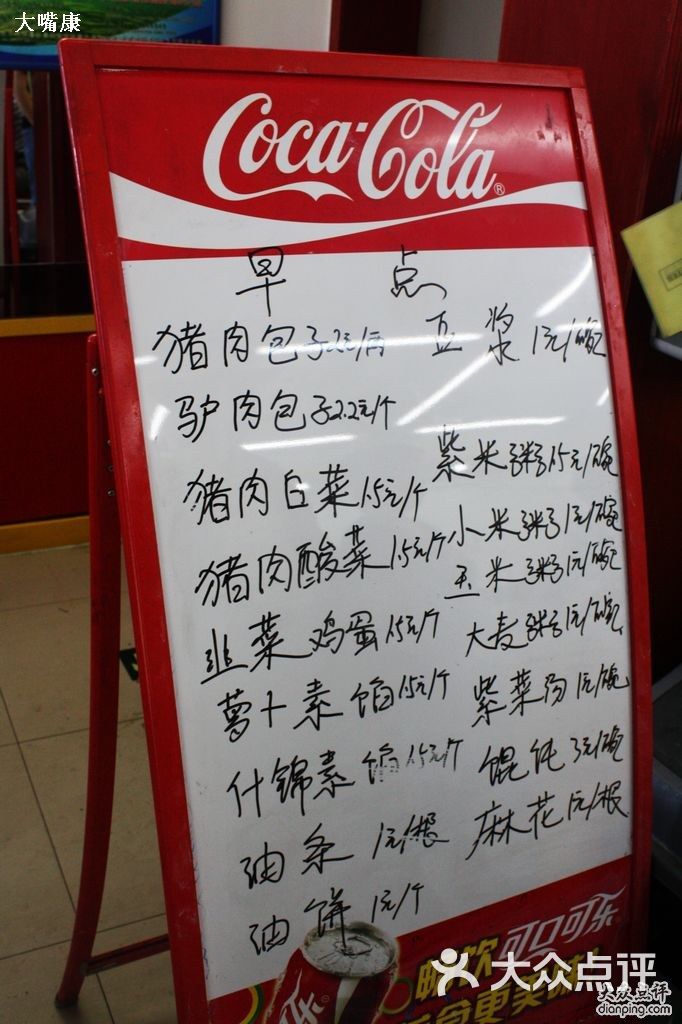 大嘴康
Coca-Cola®
早点
猪肉包子2元/個 豆浆 1元/碗
驴肉包子2.2元/个
紫米粥1.5元/碗
猪肉白菜1.5元/个
小米粥1元/碗
猪肉酸菜1.5元/个
玉米粥1元/碗
韭菜鸡蛋1.5元/个
大麦粥1元/碗
萝卜素馅1.5元/个
紫菜汤1元/碗
什锦素馅1.5元/个
馄饨3元/碗
油条 1元/根
麻花1元/根
油饼 1元/个
畅饮可口可乐
大众点评
大众点评
dianping.com